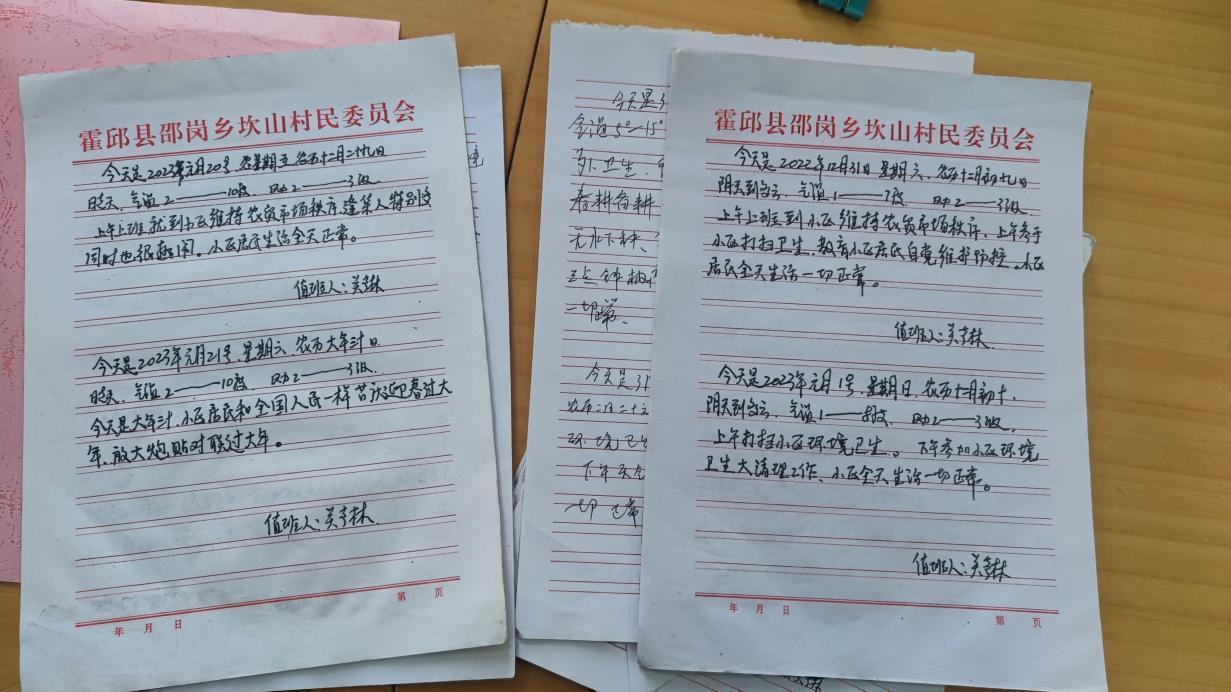 霍邱县邵岗乡坎山村民委员会
今天是2023年元月20号，农星期五 农历十二月二十九日
晴天，气温2——10度， 风力2——3级
上午上班就到小区维持农贸市场秩序，逢集人特别多
同时也很拥闹。小区居民生活全天正常。
值班人：关
今天是2023年元月21号，星期六，农历大年三十日
晴天，气温2——10度 风力2——3级
今天是大年三十，小区居民和全国人民一样节庆迎春过大
年，放大炮贴对联过大年。
值班人：关
年 月 日
第 页
今天是3
气温5°—15°
卫生，
春耕备耕
无水下秧、
三点钟
一切正常、
今天是31
农历二月二十
环境卫生
下午
一切正常
霍邱县邵岗乡坎山村民委员会
今天是2022年12月31日 星期六、农历十二月初九日
阴天到多云，气温1——7度 风力2——3级、
上午上班到小区维持农贸市场秩序、上午参于
小区打扫卫生，教育小区居民自觉维护防控。小区
居民全天生活一切正常。
值班人：关
今天是2023年元月1号，星期日，农历十二月初十、
阴天到多云，气温1——8度， 风力2——3级，
上午打扫小区环境卫生。 下午参加小区环境
卫生大清理工作、小区全天生活一切正常。
值班人：关
年 月 日
第 页